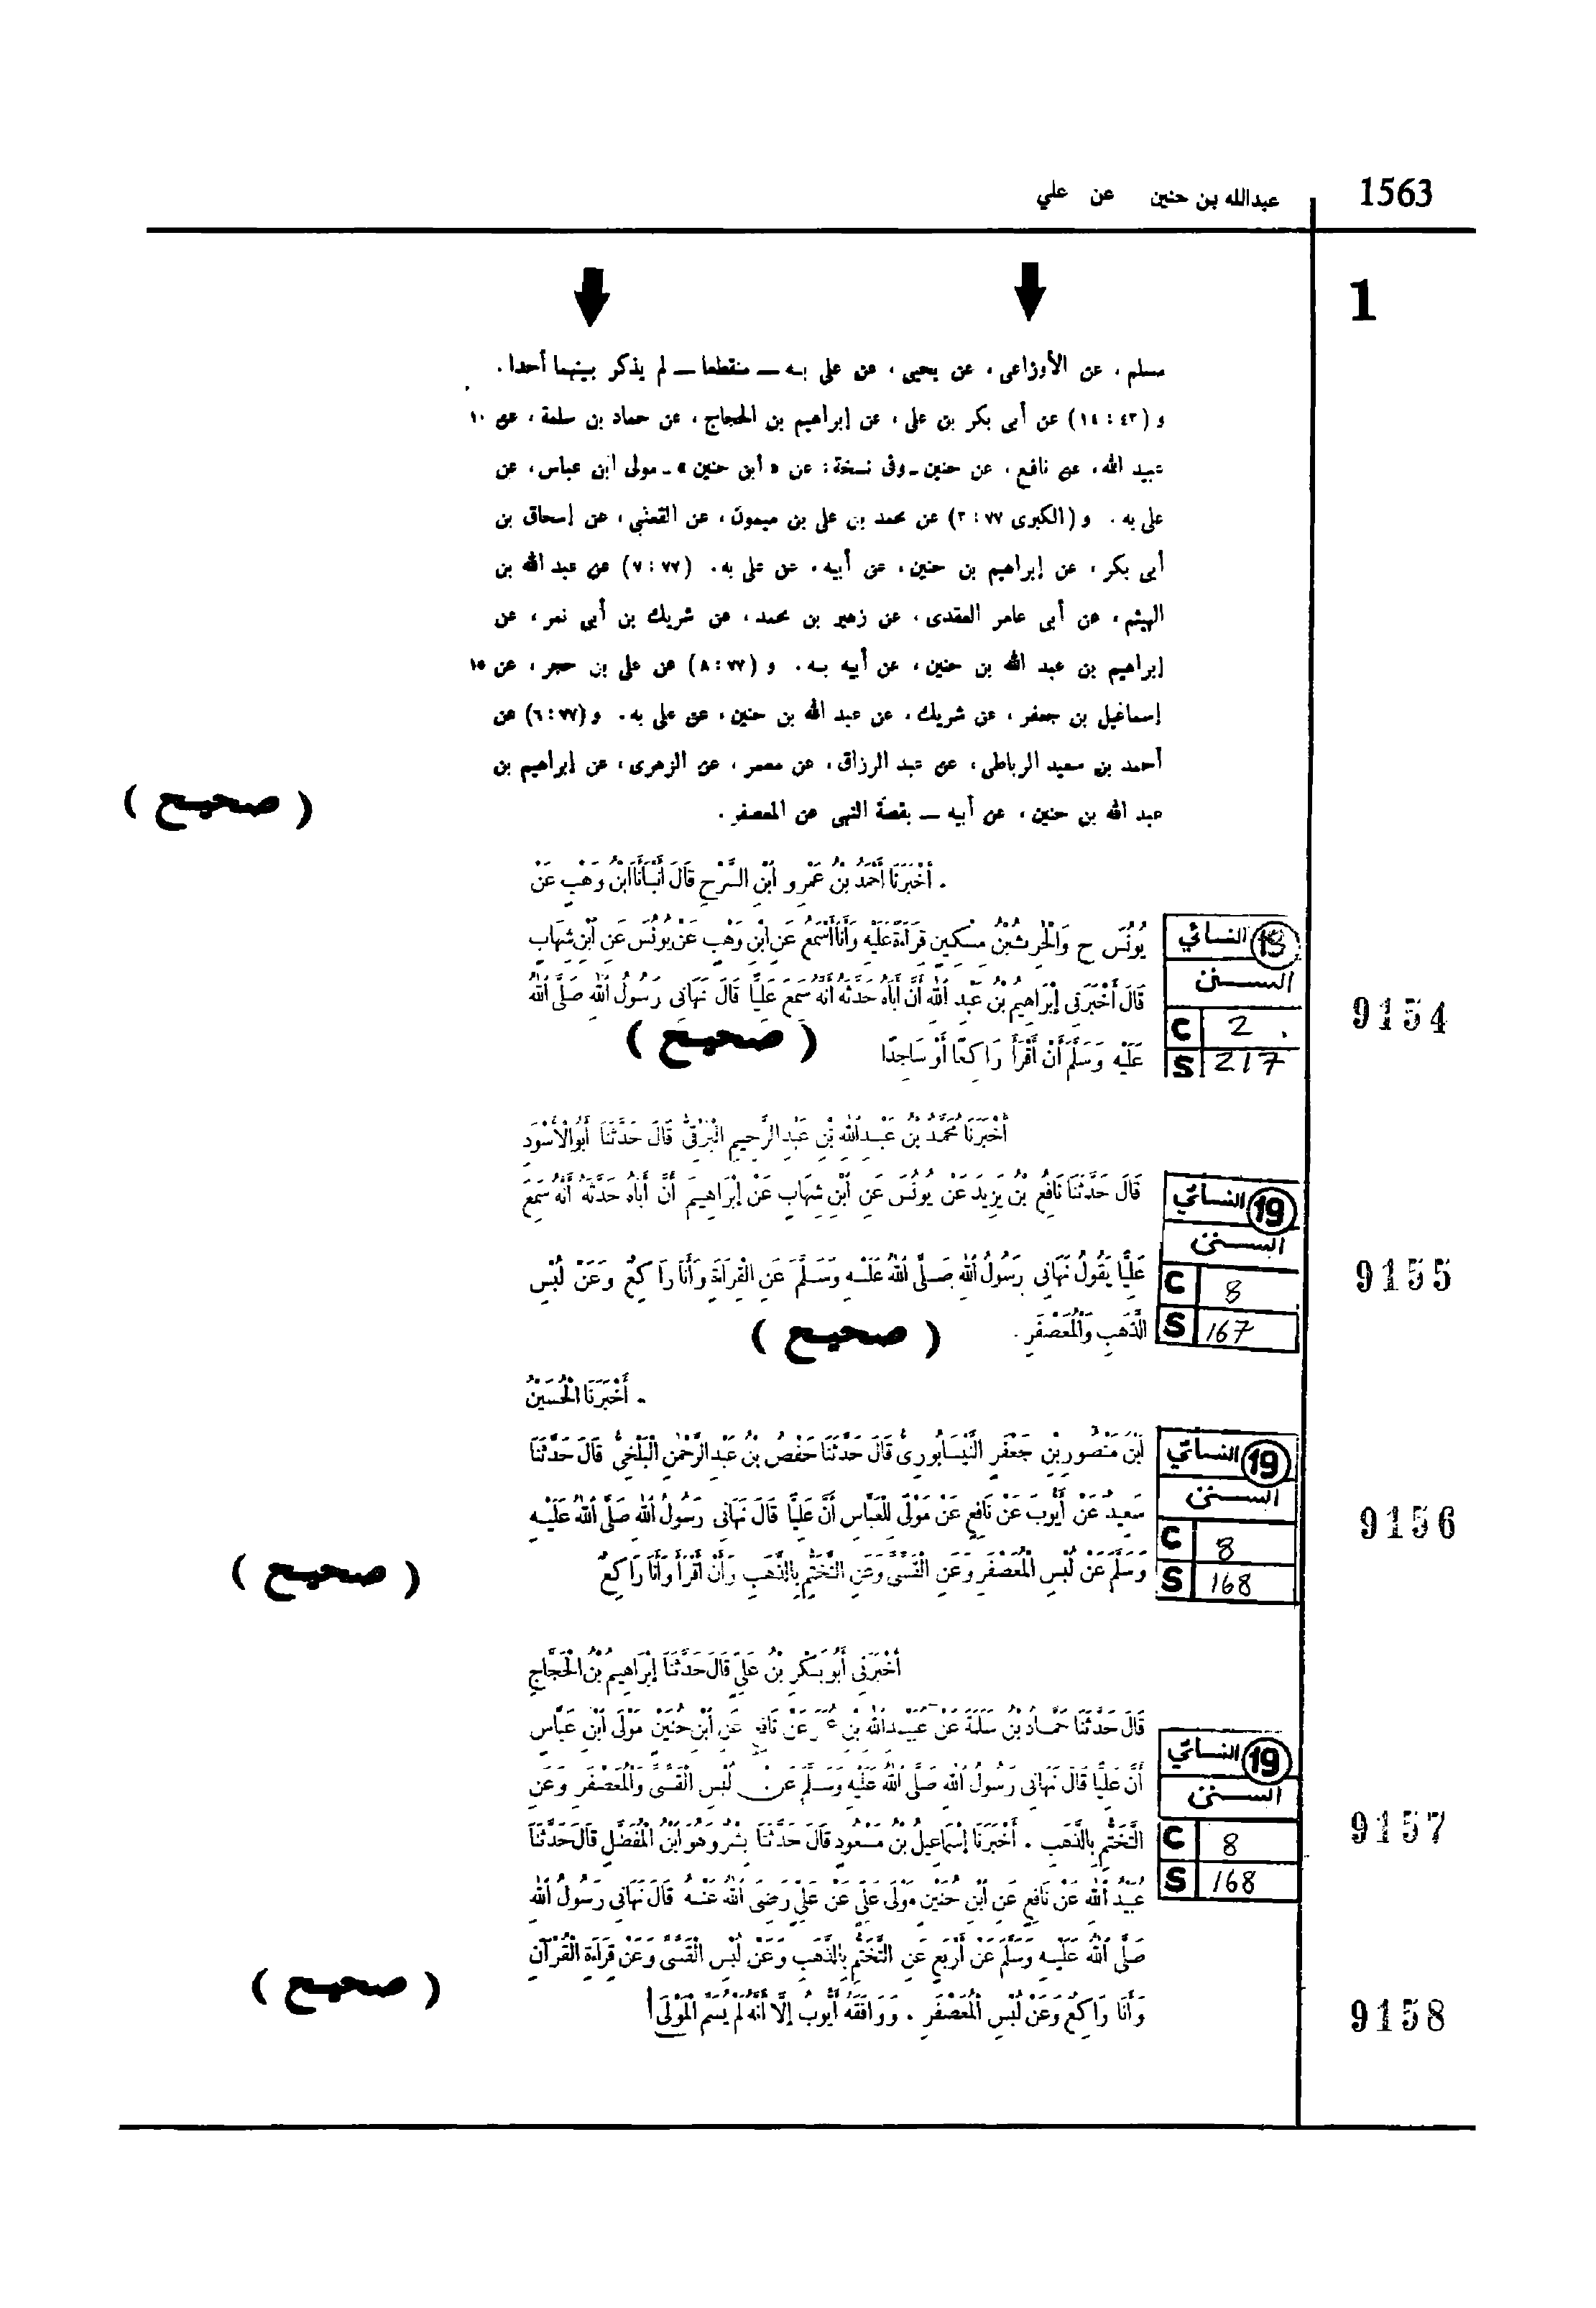 1563
عبدالله بن حنين عن علي
1
مسلم ، عن الأوزاعى ، عن يحيى ، عن على به — منقطعا — لم يذكر بينهما أحدا .
و (٤٣ : ١٤) عن أبى بكر بن على ، عن إبراهيم بن الحجاج ، عن حماد بن سلمة ، عن ١٠
عبيد الله ، عن نافع ، عن حنين - وفى نسخة : عن « ابن حنين » - مولى ابن عباس ، عن
على به . و (الكبرى ٧٧ : ٣) عن محمد بن على بن ميمون ، عن القعنبي ، عن إسحاق بن
أبى بكر ، عن إبراهيم بن حنين ، عن أبيه ، عن على به . (٧٧ : ٧) عن عبد الله بن
الهيثم ، عن أبى عامر العقدى ، عن زهير بن محمد ، عن شريك بن أبي نمر ، عن
إبراهيم بن عبد الله بن حنين ، عن أبيه به . و (٧٧ : ٨) عن على بن حجر ، عن ١٥
إسماعيل بن جعفر ، عن شريك ، عن عبد الله بن حنين ، عن على به . و (٧٧ : ٦) عن
أحمد بن سعيد الرباطى ، عن عبد الرزاق ، عن معمر ، عن الزهرى ، عن إبراهيم بن
عبد الله بن حنين ، عن أبيه — بقصة النهى عن المعصفر .
( صحيح )
. أَخْبَرَنَا أَحْمَدُ بْنُ عَمْرِو ابْنِ السَّرْحِ قَالَ أَنْبَأَنَا ابْنُ وَهْبٍ عَنْ
يُونُسَ ح وَالْحٰرِثُ بْنُ مِسْكِينٍ قِرَاءَةً عَلَيْهِ وَأَنَا أَسْمَعُ عَنِ ابْنِ وَهْبٍ عَنْ يُونُسَ عَنِ ابْنِ شِهَابٍ
قَالَ أَخْبَرَنِي إِبْرَاهِيمُ بْنُ عَبْدِ اللهِ أَنَّ أَبَاهُ حَدَّثَهُ أَنَّهُ سَمِعَ عَلِيًّا قَالَ نَهَانِي رَسُولُ اللهِ صَلَّى اللهُ
عَلَيْهِ وَسَلَّمَ أَنْ أَقْرَأَ رَاكِعًا أَوْ سَاجِدًا
( صحيح )
النسائي
السنن
C 2
S 217
9154
أَخْبَرَنَا مُحَمَّدُ بْنُ عَبْدِ اللهِ بْنِ عَبْدِ الرَّحِيمِ الْبَرْقِيُّ قَالَ حَدَّثَنَا أَبُو الْأَسْوَدِ
قَالَ حَدَّثَنَا نَافِعُ بْنُ يَزِيدَ عَنْ يُونُسَ عَنِ ابْنِ شِهَابٍ عَنْ إِبْرَاهِيمَ أَنَّ أَبَاهُ حَدَّثَهُ أَنَّهُ سَمِعَ
عَلِيًّا يَقُولُ نَهَانِي رَسُولُ اللهِ صَلَّى اللهُ عَلَيْهِ وَسَلَّمَ عَنِ الْقِرَاءَةِ وَأَنَا رَاكِعٌ وَعَنْ لُبْسِ
الذَّهَبِ وَالْمُعَصْفَرِ .
( صحيح )
19 النسائي
السنن
C 8
S 167
9155
. أَخْبَرَنَا الْحُسَيْنُ
ابْنُ مَنْصُورِ بْنِ جَعْفَرٍ النَّيْسَابُورِيُّ قَالَ حَدَّثَنَا حَفْصُ بْنُ عَبْدِ الرَّحْمٰنِ الْبَلْخِيُّ قَالَ حَدَّثَنَا
سَعِيدٌ عَنْ أَيُّوبَ عَنْ نَافِعٍ عَنْ مَوْلًى لِلْعَبَّاسِ أَنَّ عَلِيًّا قَالَ نَهَانِي رَسُولُ اللهِ صَلَّى اللهُ عَلَيْهِ
وَسَلَّمَ عَنْ لُبْسِ الْمُعَصْفَرِ وَعَنِ الْقَسِّيِّ وَعَنِ التَّخَتُّمِ بِالذَّهَبِ وَأَنْ أَقْرَأَ وَأَنَا رَاكِعٌ
( صحيح )
19 النسائي
السنن
C 8
S 168
9156
أَخْبَرَنِي أَبُو بَكْرِ بْنُ عَلِيٍّ قَالَ حَدَّثَنَا إِبْرَاهِيمُ بْنُ الْحَجَّاجِ
قَالَ حَدَّثَنَا حَمَّادُ بْنُ سَلَمَةَ عَنْ عُبَيْدِ اللهِ بْنِ عُمَرَ عَنْ نَافِعٍ عَنِ ابْنِ حُنَيْنٍ مَوْلَى ابْنِ عَبَّاسٍ
أَنَّ عَلِيًّا قَالَ نَهَانِي رَسُولُ اللهِ صَلَّى اللهُ عَلَيْهِ وَسَلَّمَ عَنْ لُبْسِ الْقَسِّيِّ وَالْمُعَصْفَرِ وَعَنِ
التَّخَتُّمِ بِالذَّهَبِ . أَخْبَرَنَا إِسْمَاعِيلُ بْنُ مَسْعُودٍ قَالَ حَدَّثَنَا بِشْرٌ وَهُوَ ابْنُ الْمُفَضَّلِ قَالَ حَدَّثَنَا
عُبَيْدُ اللهِ عَنْ نَافِعٍ عَنِ ابْنِ حُنَيْنٍ مَوْلَى عَلِيٍّ عَنْ عَلِيٍّ رَضِيَ اللهُ عَنْهُ قَالَ نَهَانِي رَسُولُ اللهِ
صَلَّى اللهُ عَلَيْهِ وَسَلَّمَ عَنْ أَرْبَعٍ عَنِ التَّخَتُّمِ بِالذَّهَبِ وَعَنْ لُبْسِ الْقَسِّيِّ وَعَنْ قِرَاءَةِ الْقُرْآنِ
وَأَنَا رَاكِعٌ وَعَنْ لُبْسِ الْمُعَصْفَرِ . وَوَافَقَهُ أَيُّوبُ إِلَّا أَنَّهُ لَمْ يُسَمِّ الْمَوْلَى
( صحيح )
19 النسائي
السنن
C 8
S 168
9157
9158